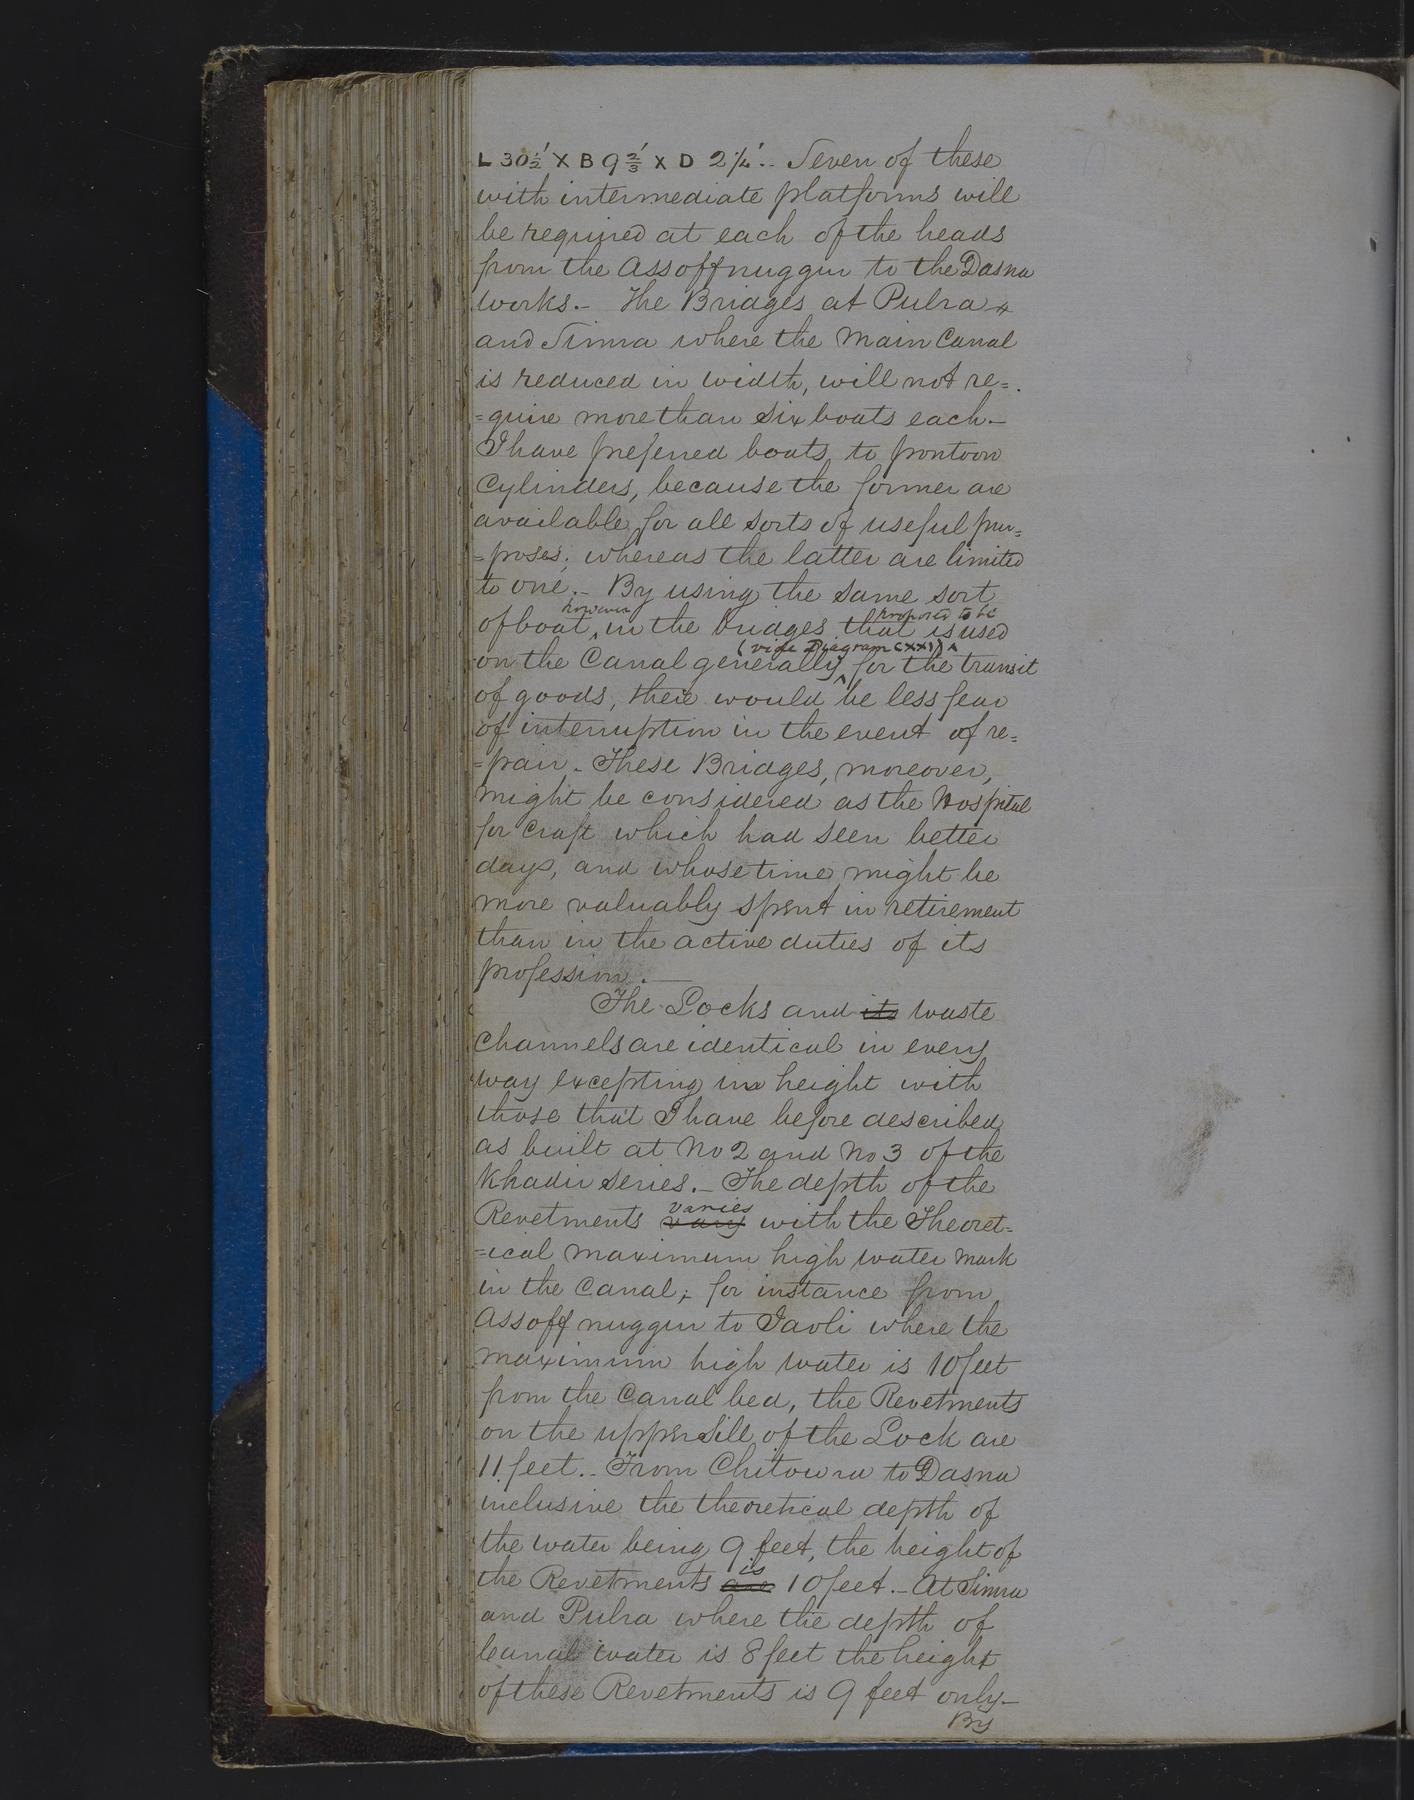 L 30½' X B 9⅔' X D 2¼'.- Seven of these
with intermediate platforms will
be required at each of the heads
from the Assoffnuggur to the Dasna
works.- The Bridges at Pulra
and Simra where the Main Canal
is reduced in width, will not re=
=quire more than six boats each.-
I have preferred boats to pontoon
Cylinders, because the former are
available for all sorts of useful pur=
=poses; whereas the latter are limited
to one.- By using the same sort
however proposed to be
of boat ^ in the bridges that is used
(vide Diagram CXXI) ^
on the Canal generally ^ for the transit
of goods, there would be less fear
of interruption in the event of re=
=pair. These Bridges, moreover,
might be considered as the Hospital
for craft which had seen better
days, and whose time might be
more valuably spent in retirement
than in the active duties of its
profession.
The Locks and its waste
channels are identical in every
way excepting in height with
those that I have before described
as built at No 2 and No 3 of the
Khadir series.- The depth of the
varies
Revetments vary with the Theoret=
=ical maximum high water mark
in the Canal; for instance from
Assoff nuggur to Jaoli where the
maximum high water is 10 feet
from the Canal bed, the Revetments
on the upper Sill of the Lock are
11 feet.- From Chitowra to Dasna
inclusive the theoretical depth of
the water being 9 feet, the height of
is
the Revetments are 10 feet.- At Simra
and Pulra where the depth of
Canal water is 8 feet the height
of these Revetments is 9 feet only-
By